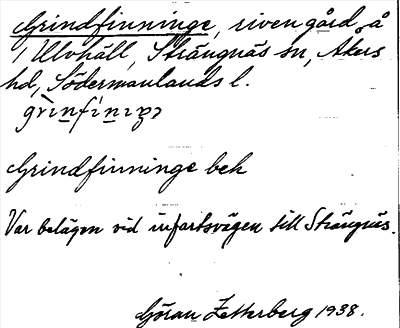 Grindfinninge, riven gård, å
/ Ulvhäll, Strängnäs sn, Åkers
hd, Södermanlands l.
Grindfinninge bek
Var belägen vid infartsvägen till Strängnäs.
Göran Zetterberg 1938.